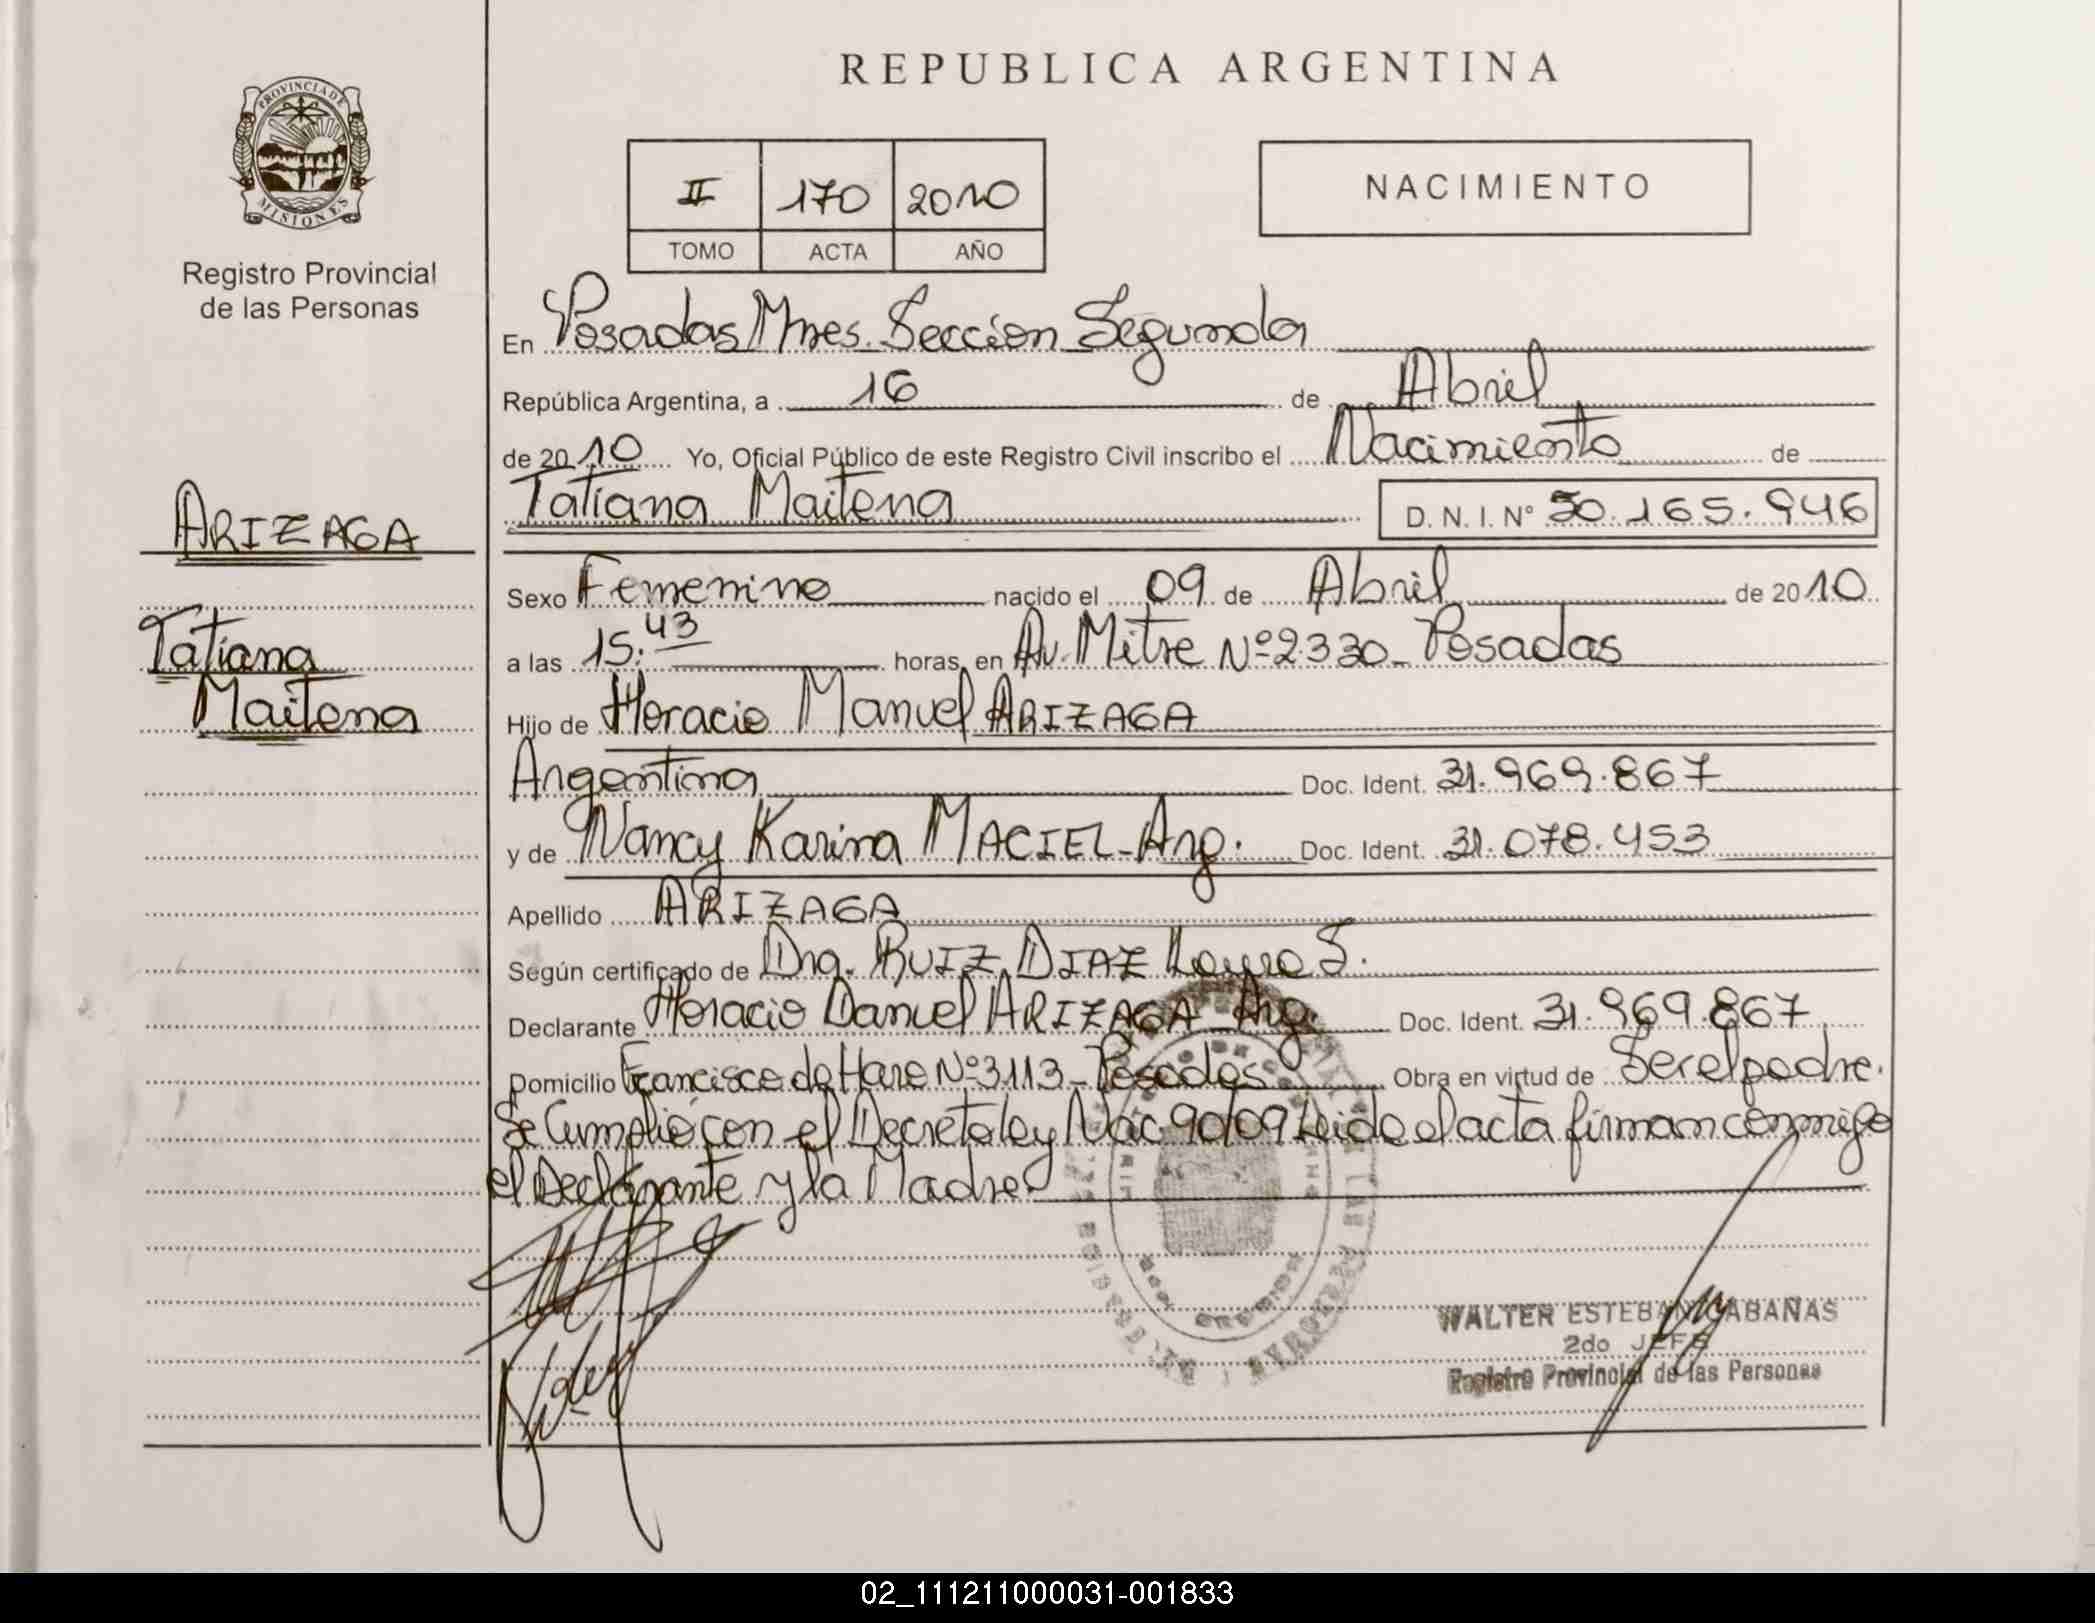 REPUBLICA ARGENTINA
PROVINCIA DE
MISIONES
Registro Provincial
de las Personas
II 170 2010
TOMO ACTA AÑO
NACIMIENTO
En Posadas Mnes. Sección Segunda
República Argentina, a 16 de Abril
de 2010 Yo, Oficial Público de este Registro Civil inscribo el Nacimiento de
Tatiana Maitena D. N. I. Nº 50.165.946
ARIZAGA
Tatiana
Maitena
Sexo Femenino nacido el 09 de Abril de 2010
a las 15:43 horas, en Av. Mitre Nº 2330 - Posadas
Hijo de Horacio Manuel ARIZAGA
Argentina Doc. Ident. 31.969.867
y de Nancy Karina MACIEL - Arg. Doc. Ident. 31.078.453
Apellido ARIZAGA
Según certificado de Dra. RUIZ DIAZ Laura S.
Declarante Horacio Daniel ARIZAGA - Arg. Doc. Ident. 31.969.867
Domicilio Francisco de Haro Nº 3113 - Posadas Obra en virtud de Ser el padre.
Se Cumplió con el Decreto ley Nac. 90/09 Leida el acta firman conmigo
el Declarante y la Madre
WALTER ESTEBAN CABAÑAS
2do JEFE
Registro Provincial de las Personas
02_111211000031-001833